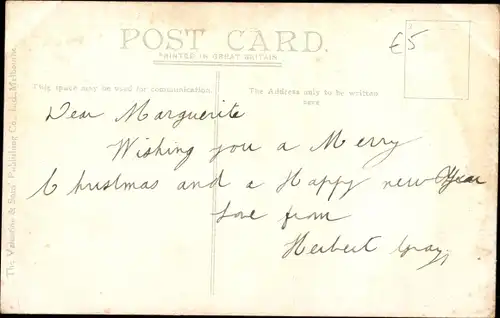 POST CARD.
PRINTED IN GREAT BRITAIN
£5
This space may be used for communication.
The Address only to be written
here
Dear Marguerite
Wishing you a Merry
Christmas and a Happy new Year
Love from
Herbert Gray,
The Valentine & Sons' Publishing Co., Ltd., Melbourne.